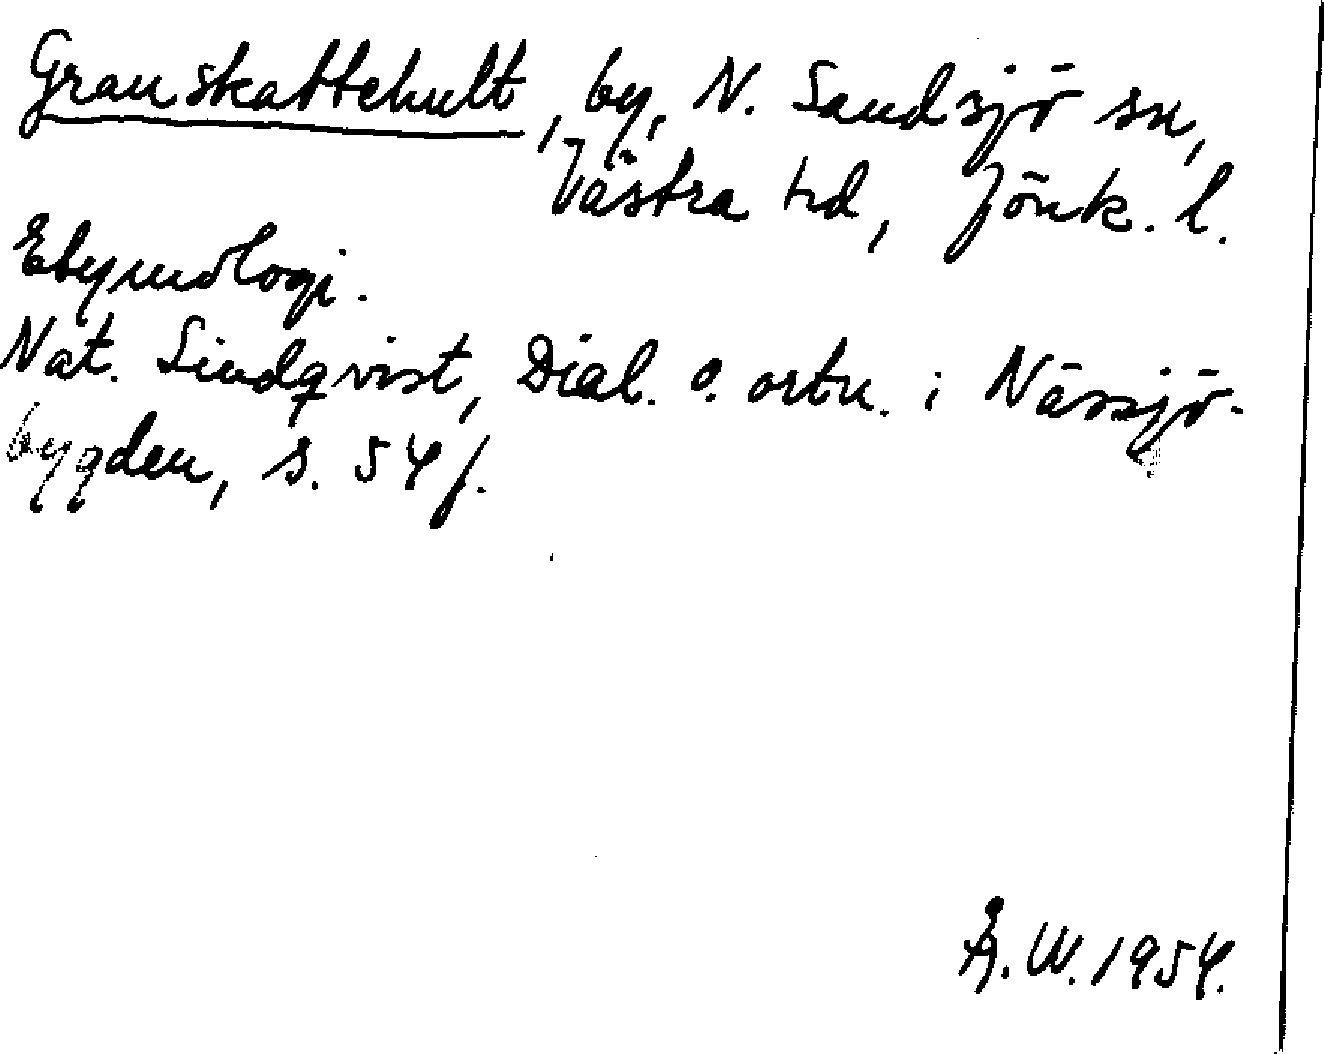 Granskattehult, by, N. Sandsjö sn,
Västra hd, Jönk. l.
Etymologi.
Nat. Lindqvist, Dial. o. ortn. i Nässjö-
bygden, s. 54 f.
Å. W. 1954.